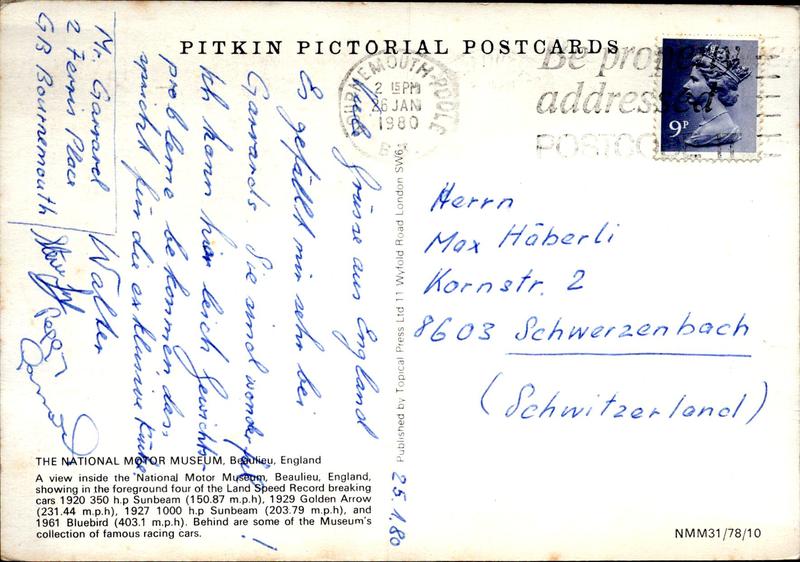 PITKIN PICTORIAL POSTCARDS
BOURNEMOUTH-POOLE
2 15PM
26 JAN
1980
Be properly
addressed
POSTCODE IT
9P
Mr. Garrard
2 Ferris Place
GB Bournemouth
25.1.80
Grüsse aus England
Es gefällt mir sehr bei
Garrards. Sie sind wonderful!
Ich kann hier leich Gewichts-
probleme bekommen, das
spricht für die exklusive Küche.
Walter
Published by Topical Press Ltd 11 Wyfold Road London SW6
Herrn
Max Häberli
Kornstr. 2
8603 Schwerzenbach
(Schwitzerland)
THE NATIONAL MOTOR MUSEUM, Beaulieu, England
A view inside the National Motor Museum, Beaulieu, England,
showing in the foreground four of the Land Speed Record breaking
cars 1920 350 h.p Sunbeam (150.87 m.p.h), 1929 Golden Arrow
(231.44 m.p.h), 1927 1000 h.p Sunbeam (203.79 m.p.h), and
1961 Bluebird (403.1 m.p.h). Behind are some of the Museum's
collection of famous racing cars.
NMM31/78/10